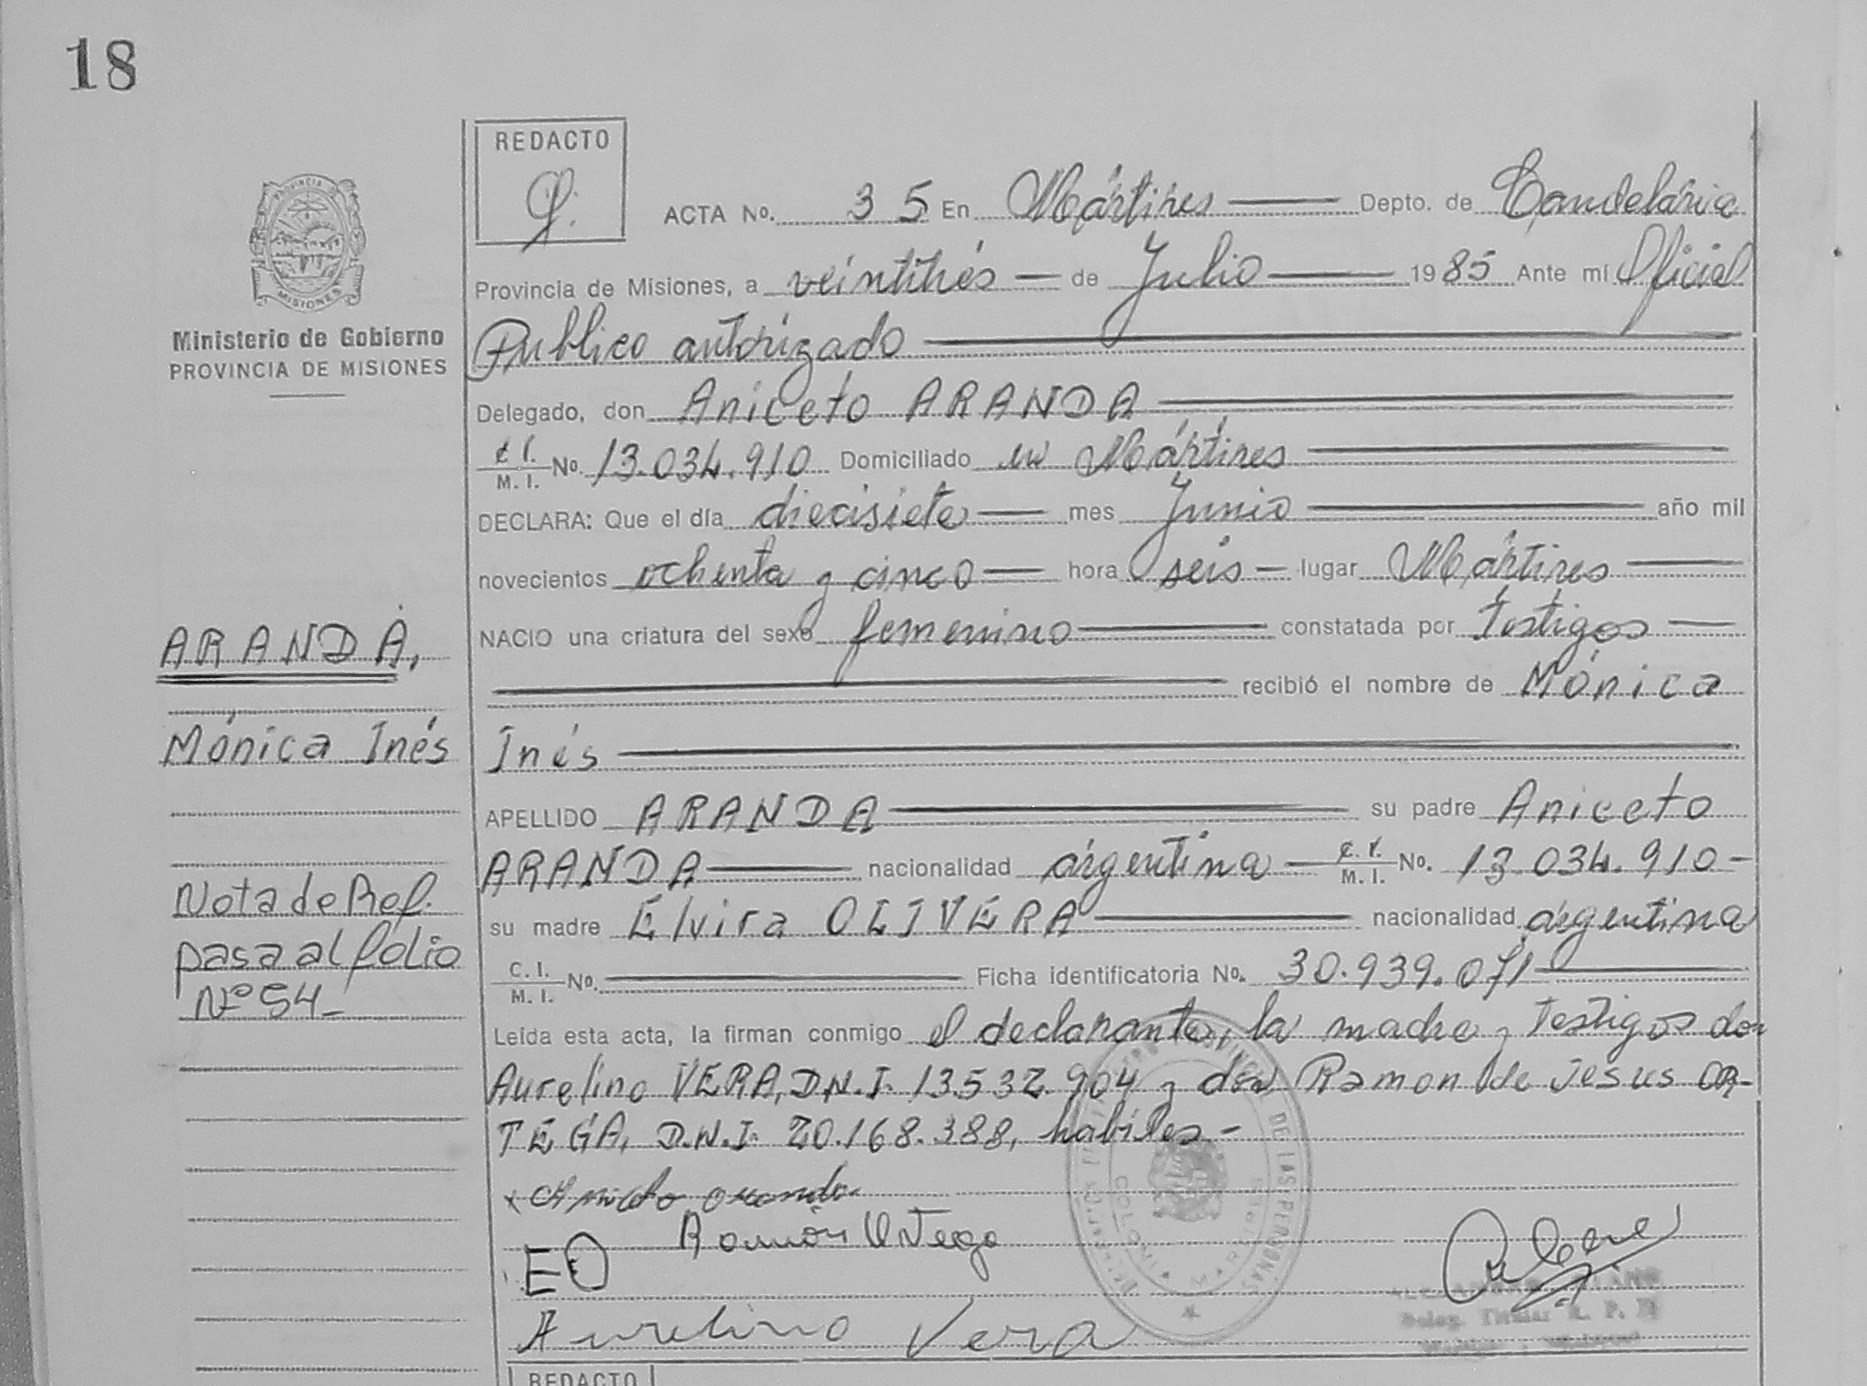 18
REDACTO
ACTA No. 35 En Mártires Depto. de Candelaria
Provincia de Misiones, a veintitrés de Julio 1985 Ante mí Oficial
Publico autorizado
Delegado, don Aniceto ARANDA
C.I. M.I. No. 13.034.910 Domiciliado en Mártires
DECLARA: Que el día diecisiete mes Junio año mil
novecientos ochenta y cinco hora seis lugar Mártires
NACIO una criatura del sexo femenino constatada por testigos
recibió el nombre de Mónica
Inés
APELLIDO ARANDA su padre Aniceto
ARANDA nacionalidad argentina C.I. M.I. No. 13.034.910
su madre Elvira OLIVERA nacionalidad argentina
C.I. M.I. No. Ficha identificatoria No. 30.939.071
Leída esta acta, la firman conmigo el declarante, la madre y testigos don
Aurelino VERA, D.N.I. 13.532.904 y don Ramon de Jesus OR-
TEGA, D.N.I. 20.168.388, habiles -
Aniceto Aranda
Ramón Ortega
EO
Aurelino Vera
REDACTO
PROVINCIA DE
MISIONES
Ministerio de Gobierno
PROVINCIA DE MISIONES
ARANDA,
Mónica Inés
Nota de Ref.
pasa al folio
Nº 54-
DE LAS PERSONAS
COLONIA MARTIRES
Deleg. Titular R. P.